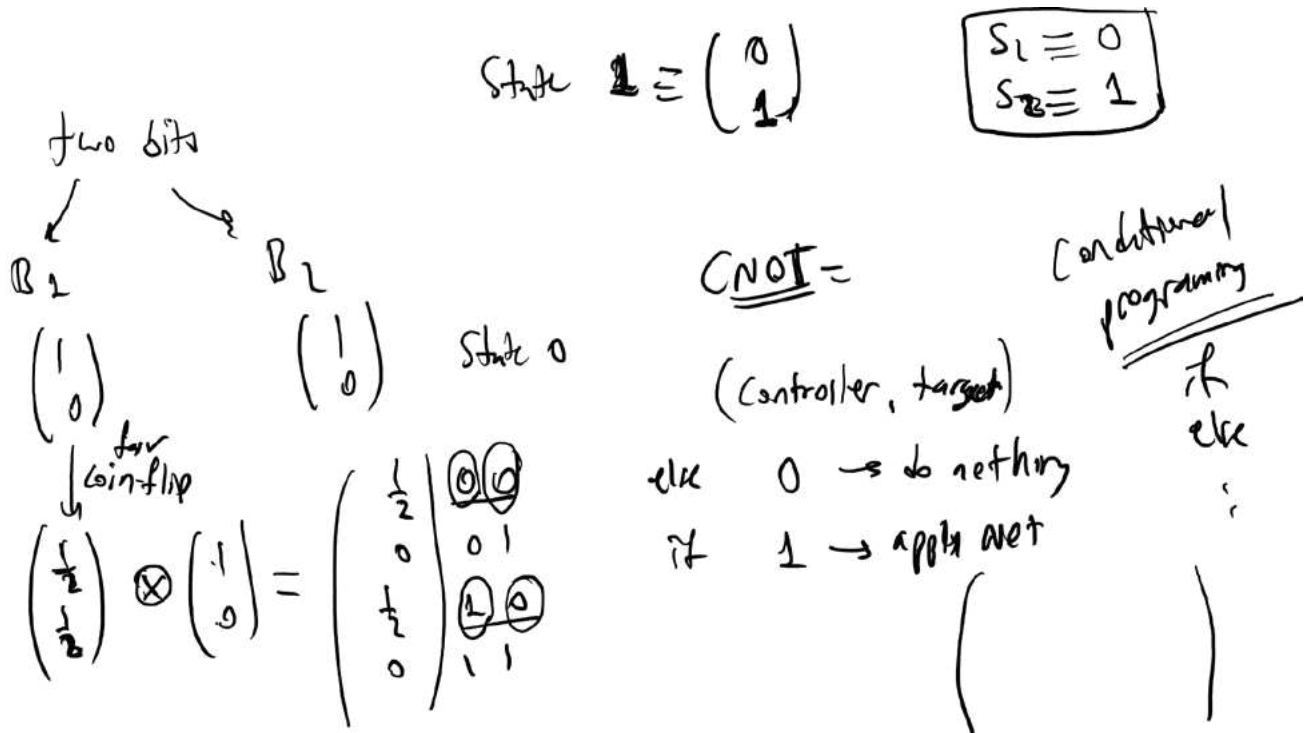 State 1 ≡ (0 1)
S1 ≡ 0
S2 ≡ 1
two bits
B1
B2
(1 0)
(1 0)
State 0
fair
coin-flip
(1/2 1/2) ⊗ (1 0) = (1/2 0 1/2 0)
0 0
0 1
1 0
1 1
CNOT =
(Controller, target)
else 0 → do nothing
if 1 → apply not
Conditional
programing
if
else
: